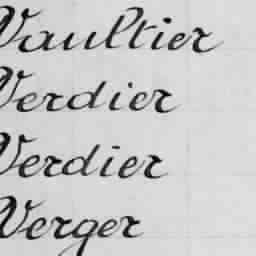 Vaultier
Verdier
Verdier
Verger